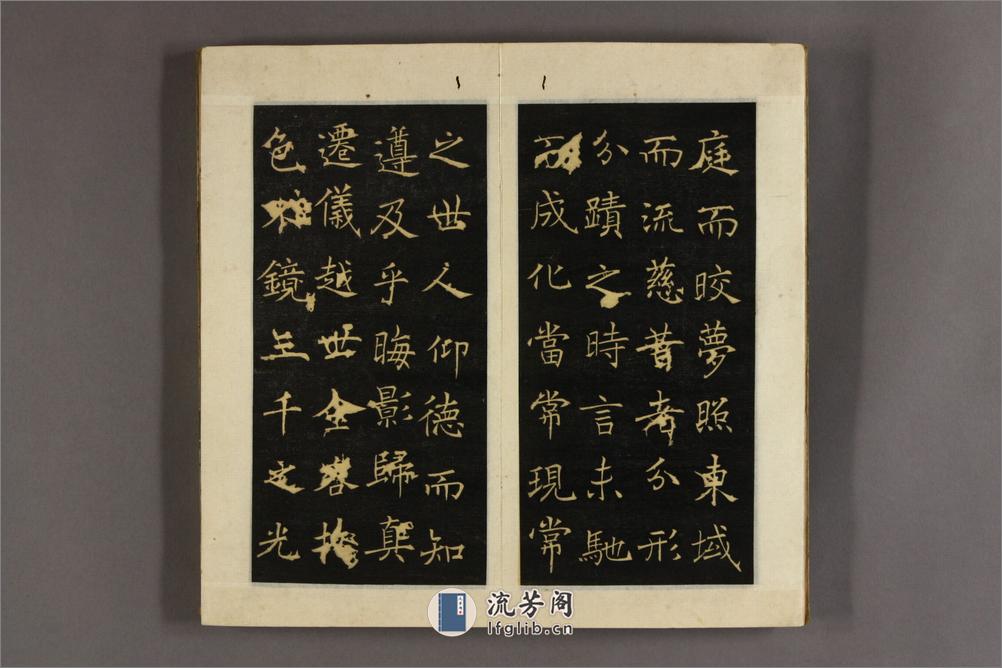 庭而晈夢照東域
而流慈昔者分形
分蹟之時言未馳
而成化當常現常
之世人仰德而知
遵及乎晦影歸真
遷儀越世金容掩
色不鏡三千之光
流芳阁
lfglib.cn